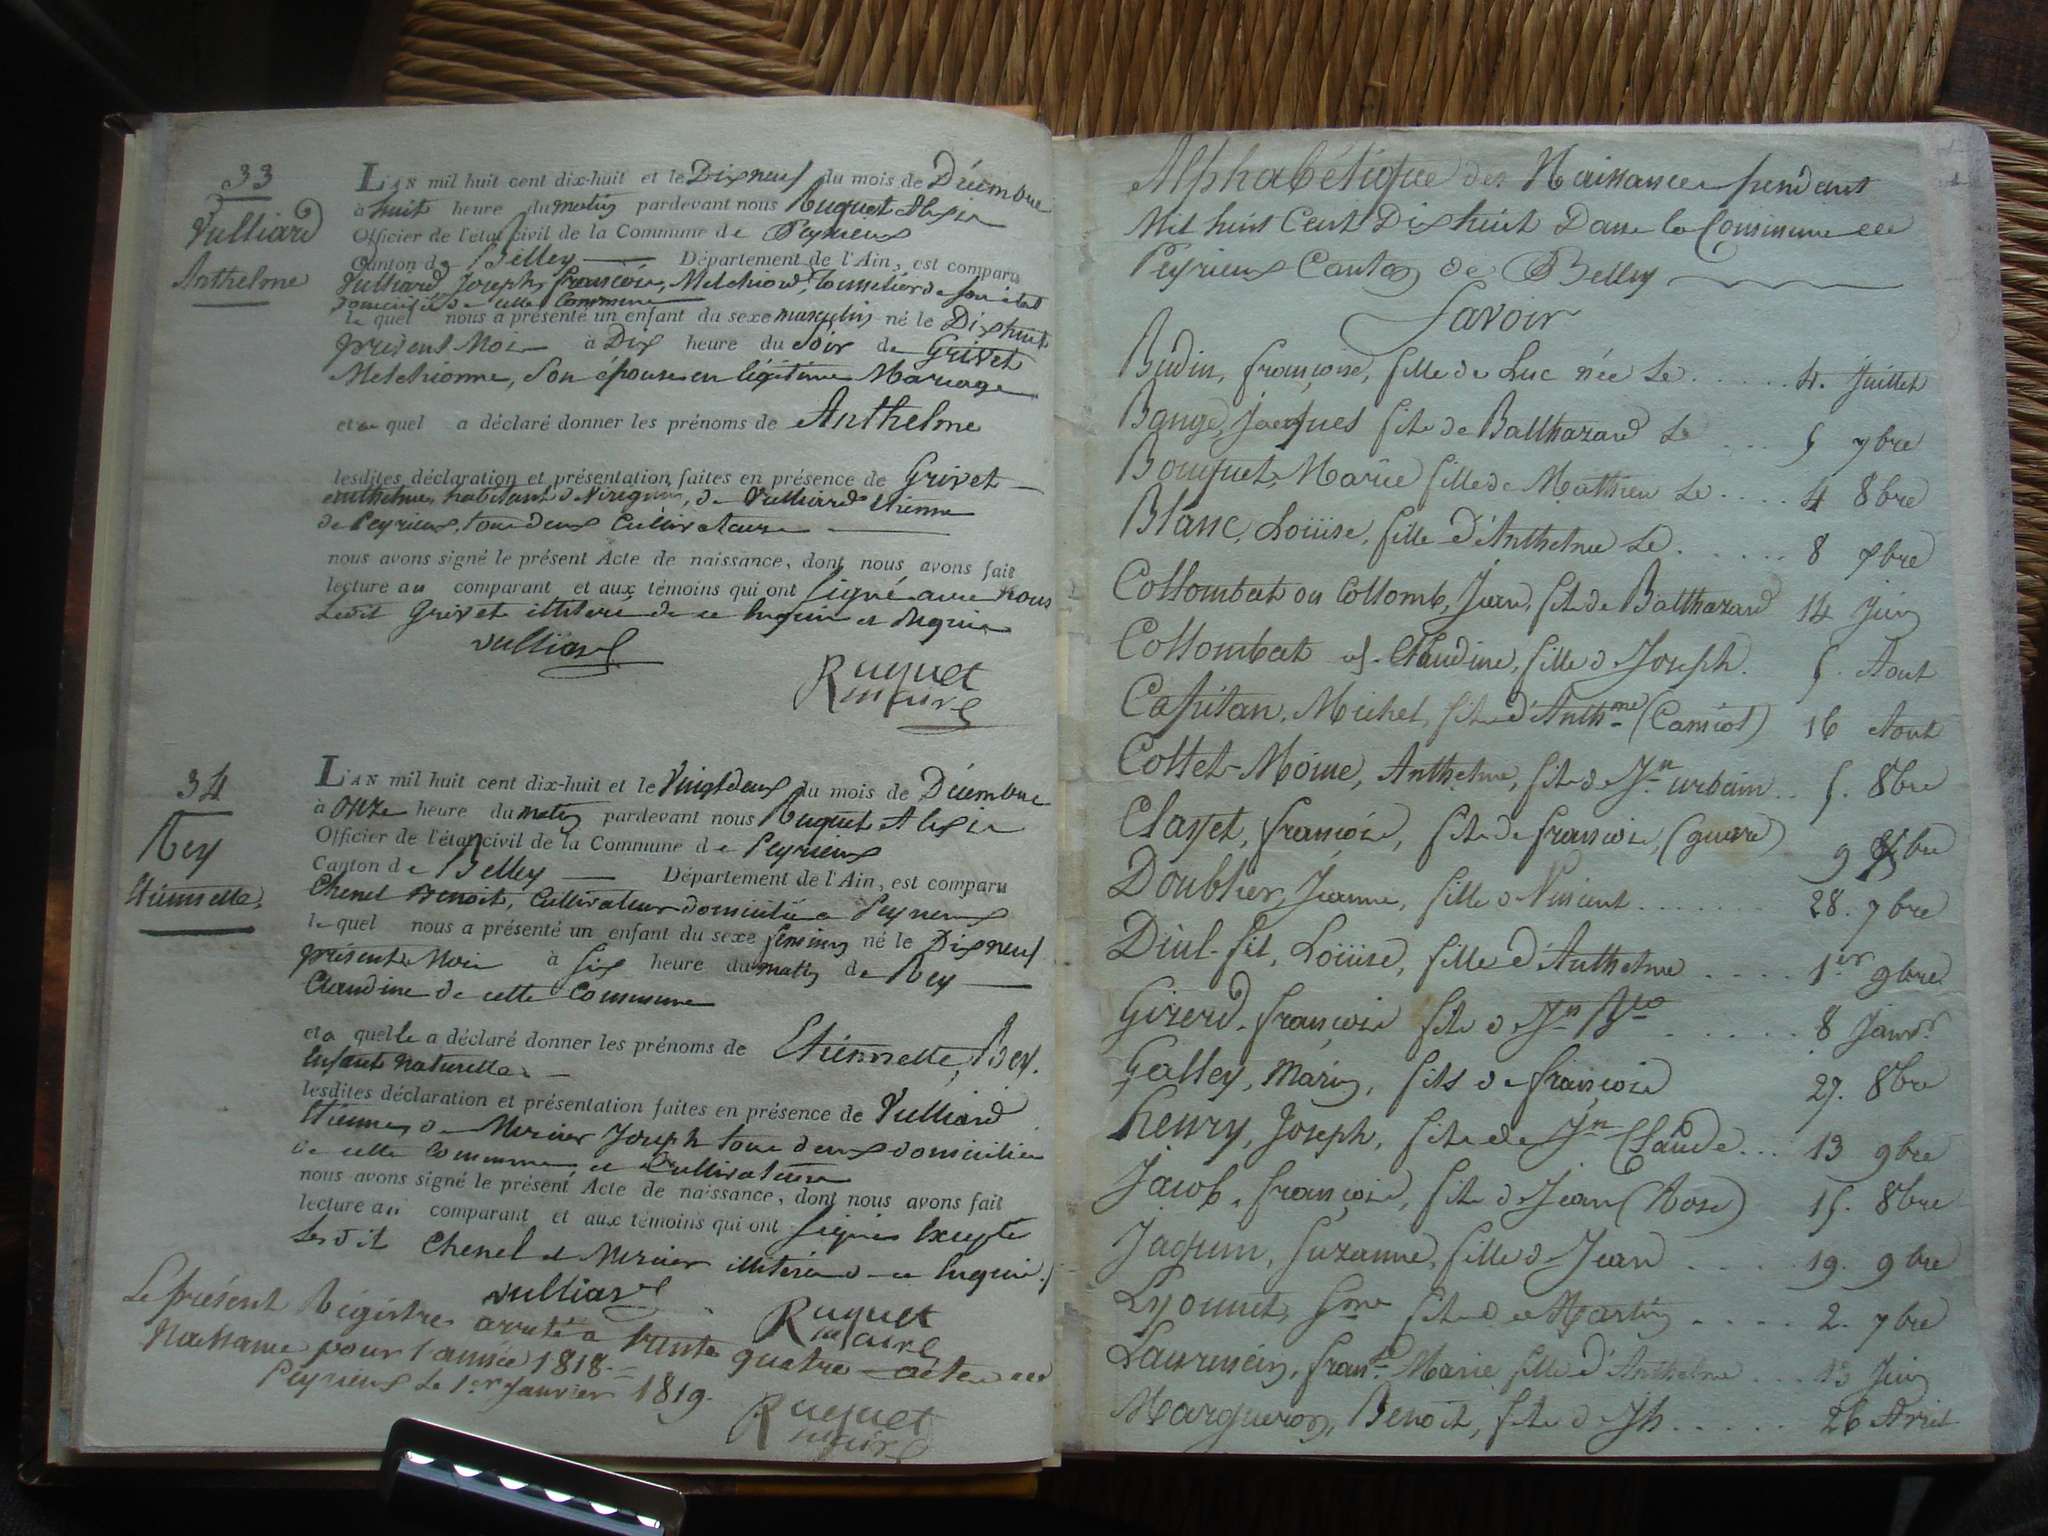 33
Vulliard
Anthelme
L'AN mil huit cent dix-huit et le Dixneuf du mois de Décembre
à huit heure du matin pardevant nous Ruquet Alexis
Officier de l'état civil de la Commune de Peyrieux
Canton de Belley Département de l'Ain, est comparu
Vulliard Joseph, françois, Melchiord, de son état
domicilié de cette Commune
le quel nous a présenté un enfant du sexe masculin né le Dixhuit
present Mois à Dix heure du Soir de Grivet
Melchionne, Son épouse en légitime Mariage
et au quel a déclaré donner les prénoms de Anthelme
lesdites déclaration et présentation faites en présence de Grivet
anthelme, habitant de Virignin, de Vulliard Etienne
de Peyrieux, tous deux Cultivateurs
nous avons signé le présent Acte de naissance, dont nous avons fait
lecture au comparant et aux témoins qui ont signé avec nous
Ledit Grivet illitere de ce enquis et requis
Vulliard
Ruquet
maire
34
Rey
Etiennette
L'AN mil huit cent dix-huit et le Vingtdeux du mois de Décembre
à Onze heure du matin pardevant nous Ruquet Alexis
Officier de l'état civil de la Commune de Peyrieux
Canton de Belley Département de l'Ain, est comparu
Chenel Benoit, Cultivateur domicilié a Peyrieux
le quel nous a présenté un enfant du sexe feminin né le Dixneuf
présent Mois à Six heure du matin de Rey
Claudine de cette Commune
et a quelle a déclaré donner les prénoms de Etiennette, Rey.
Enfant naturelle
lesdites déclaration et présentation faites en présence de Vulliard
Etienne, de Mercier Joseph tous deux domiciliés
de cette Commune, et Cultivateurs
nous avons signé le présent Acte de naissance, dont nous avons fait
lecture au comparant et aux témoins qui ont signés Excepte
Lesdit Chenel et Mercier illiterés de ce Enquis
Vulliard
Ruquet
maire
Le présent Régistre arreté a trente quatre actes de
Naissance pour l'année 1818
Peyrieux Le 1er Janvier 1819.
Ruquet
maire
Alphabétique des Naissances pendant
Mil huit Cent Dixhuit Dans la Commune de
Peyrieux Canton de Belley
Savoir
Budin, françoise, fille de Luc née Le ..... 4. Juillet
Bange, Jacques fils de Balthazard Le ... 5 7bre
Bouquet, Marie fille de Mathieu Le .... 4 8bre
Blanc, Loüise, fille D'Anthelme Le ..... 8 7bre
Collombat ou Collomb, Jean, fils de Balthazard 14 Juin
Collombat Claudine, fille de Joseph. 5. Aout
Capitan, Michel, fils d'Anthme (Camiot) 16 Aout
Collet-Moine, Anthelme, fils de Jn urbain .. 5. 8bre
Clayet, françois, fils de françois, (guerre) 9 bre
Doublier, Jeanne, fille de Vincent ....... 28. 7bre
Diul-fit, Loüise, fille d'Anthelme .... 1er 9bre
Girerd, françois fils de Jn Bte ...... 8 Janvr
Galley, Marin, fils de françois 27. 8bre
henry, Joseph, fils de Jn Claude ... 13 9bre
Jacob, françois, fils de Jean (Rose) 15. 8bre
Jaquin, Suzanne, fille de Jean ..... 19. 9bre
Lyonnet, fils de Martin ..... 2. 7bre
Laurencin, franse Marie fille d'Anthelme ... 13 Juin
Margueron, Benoît, fils de Jh ..... 26 Avril